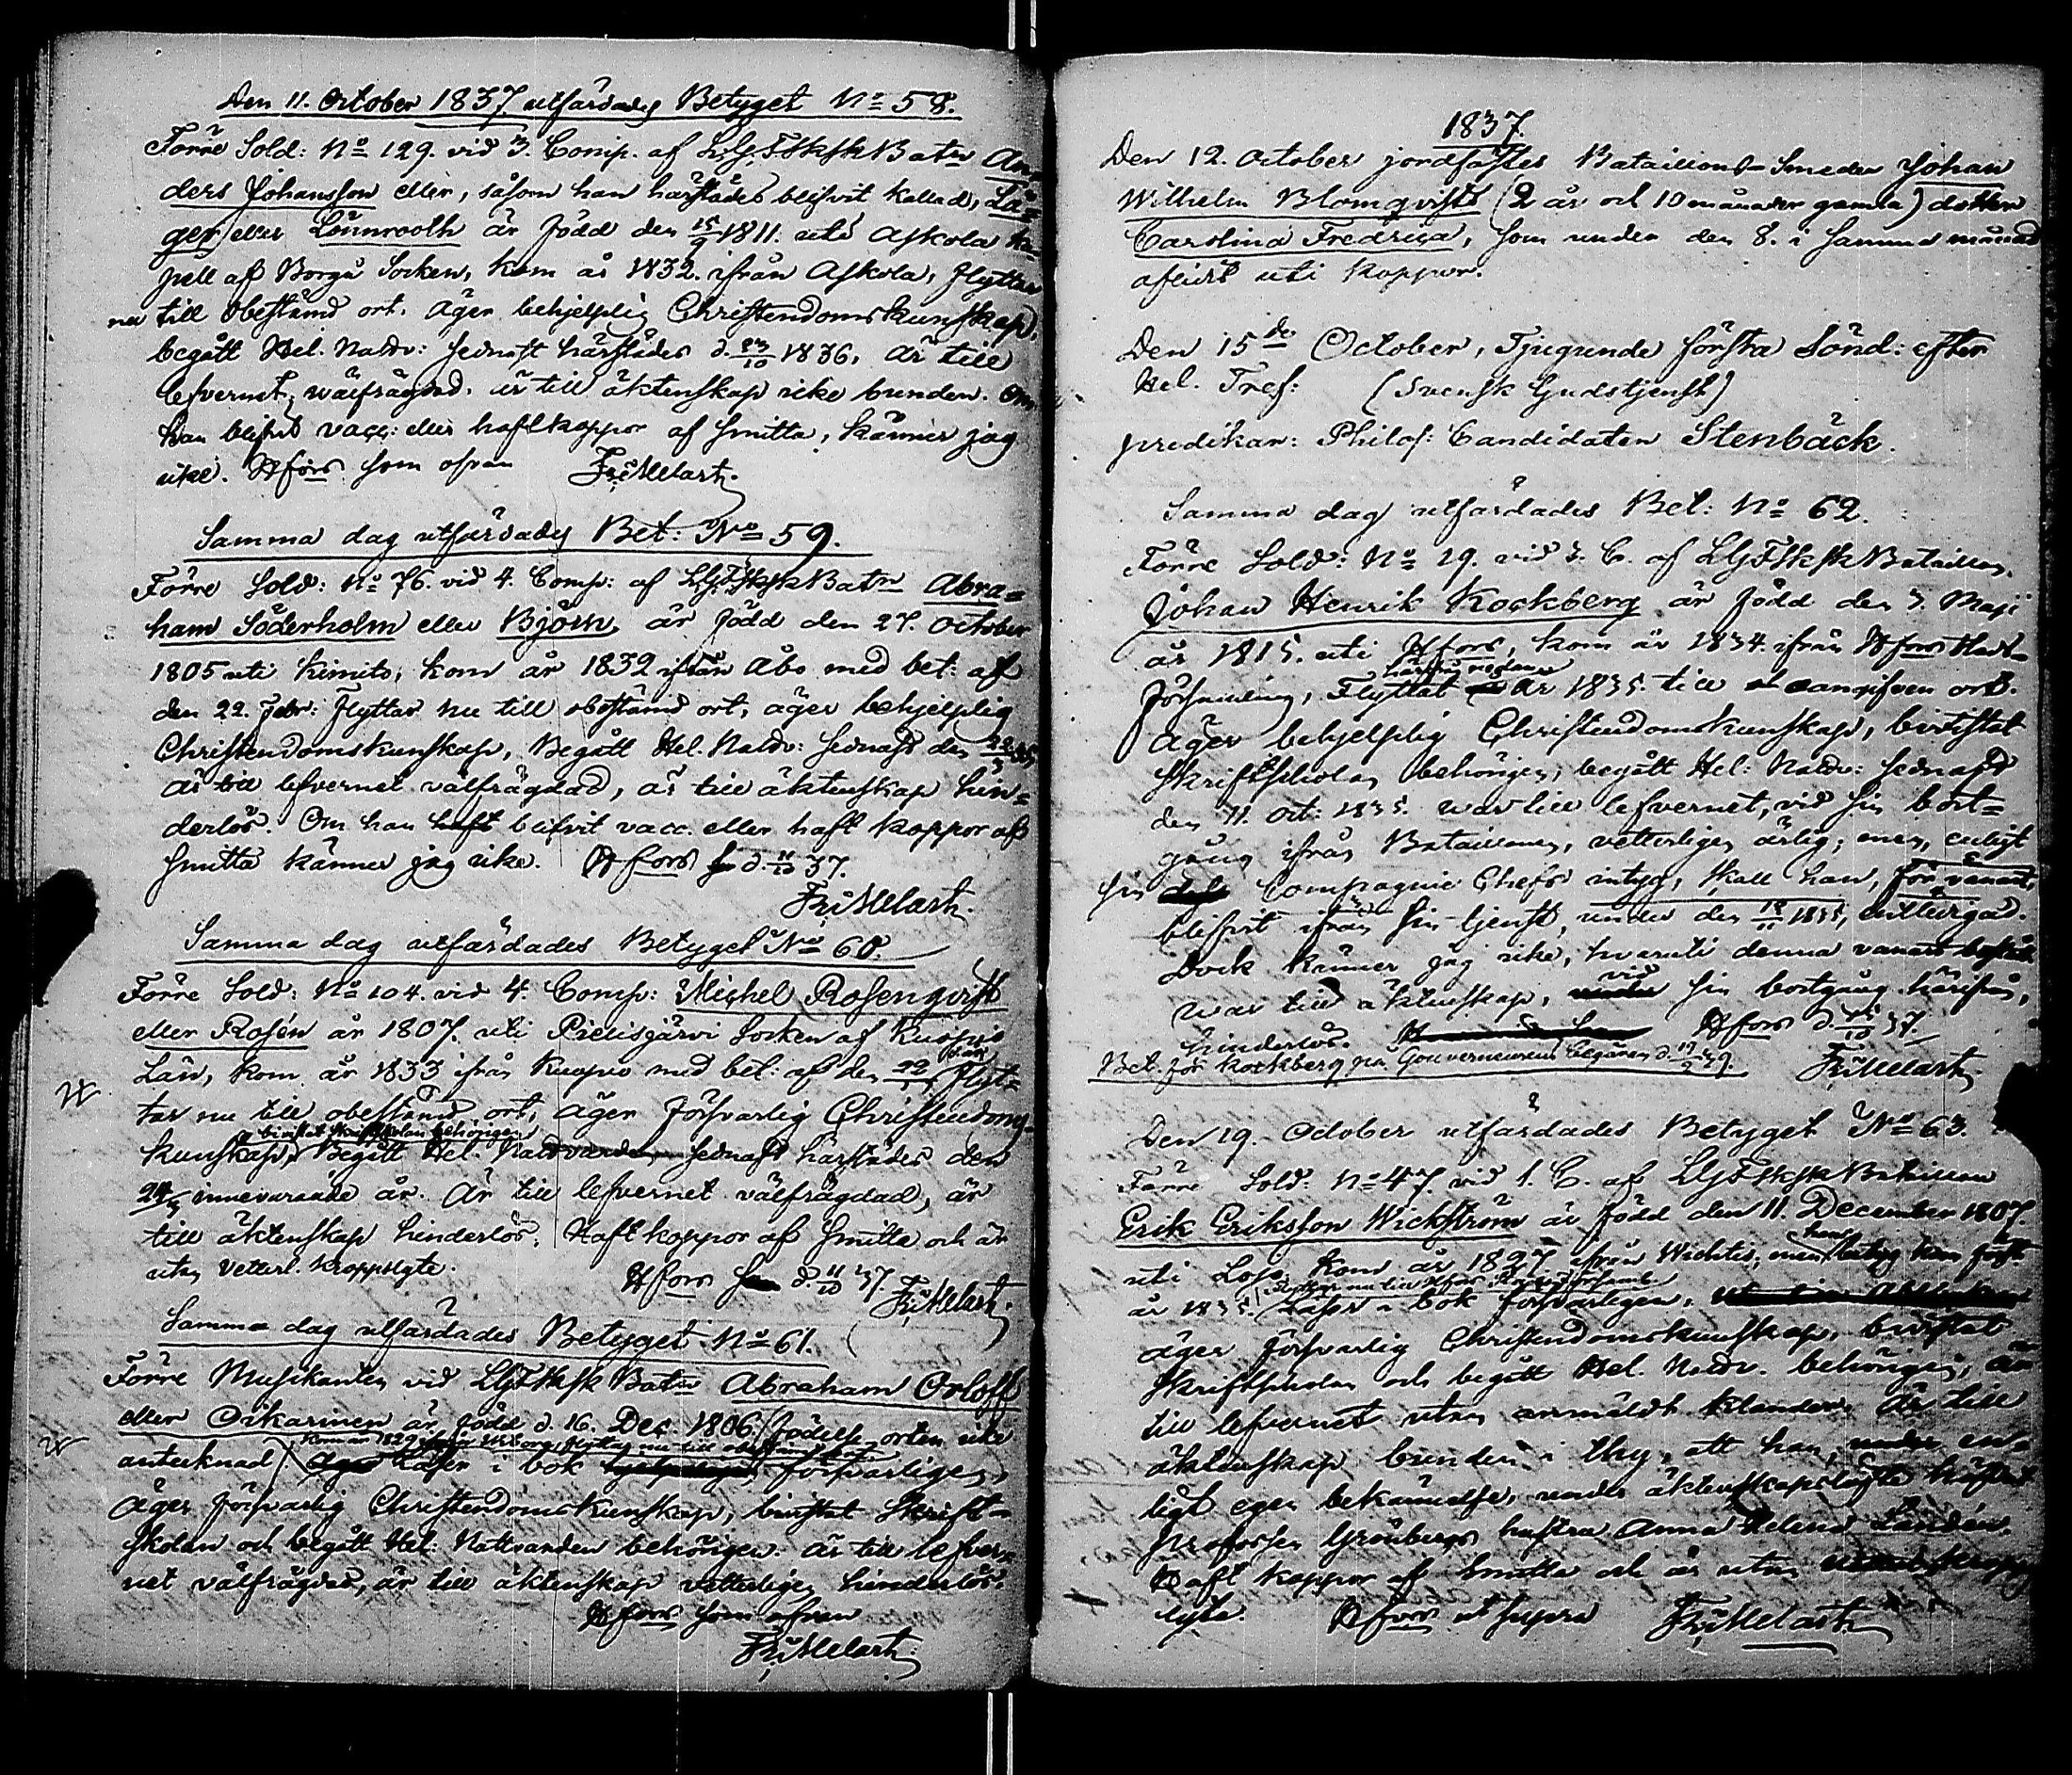 Den 11. October 1837. utfärdades Betyget No 58.
Förre Sold: No 129. vid 3. Comp. af LGFSkskBatn An-
ders Johansson eller, såsom han härstädes blifvit kallad, La-
ger eller Lönnrooth är född den 15/9 1811. uti Askola Ka-
pell af Borgå Socken, kom år 1832. ifrån Askola, flyttar
nu till obestämd ort. Äger behjelplig Christendomskunskap,
begått Hel. Nattv: sednast härstädes d. 23/10 1836. Är till
lefvernet välfrägdad. är till äktenskap icke bunden. Om
han blifvit vacc: eller haft koppor af smitta, känner jag
icke. Hfors som ofvan Fr: Melart.
Samma dag utfärdades Bet: No 59.
Förre Sold: No 76. vid 4. Comp: af LGFSkskBatn Abra=
ham Söderholm eller Björn, är född den 27. October
1805 uti Kimito, kom år 1832 ifrån Åbo med bet: af
den 22. Febr: flyttar nu till obestämd ort, äger behjelplig
Christendomskunskap, Begått Hel. Nattv: sednast den
är till lefvernet välfrägdad, är till äktenskap hin=
derlös. Om han haft blifvit vacc. eller haft koppor af
smitta känner jag icke. Hfors d. 11/10 37.
Fr: Melart.
Samma dag utfärdades Betyget No 60.
Förre Sold: No 104. vid 4. Comp: Michel Rosenqvist
eller Rosén är 1807. uti Pielisjärvi Socken af Kuopio
Län, kom år 1833 ifrån Kuopio med bet: af den 22/1 Flyt=
tar nu till obestämd ort, äger försvarlig Christendoms-
bivistat Skriftskolan behörigen
kunskap, Begått Hel. Nattvarden sednast härstädes den
24/3 innevarande år. Är till lefvernet välfrägdad, är
till äktenskap hinderlös. Haft koppor af smitta och är
utan vetterl. kroppslyte.
Hfors d. 11/10 37. Fr: Melart.
Samma dag utfärdades Betyget No 61.
Förre Musikanten vid LGFSksk Batn Abraham Orloff
eller Oikarinen är född d. 16. Dec. 1806. (Födelse orten icke
kom år 1829 ifrån Wiborg, flyttar nu till obestämd ort
antecknad) äger Läser i bok försvarligen,
äger försvarlig Christendomskunskap, bivistat Skrift-
skolan och begått Hel: Nattvarden behörigen. är till lefver=
net välfrägdad, är till äktenskap vetterligen hinderlös.
Hfors som ofvan
Fr: Melart.
1837.
Den 12. October jordfästes Bataillons-Smeden Johan
Wilhelm Blomqvists (2 år och 10 månader gamla) dotter
Carolina Fredrica, som under den 8. i samma månad
aflidit uti koppor.
Den 15de October, Tjugunde första Sönd: efter
Hel. Tref: (Svensk Gudstjenst)
predikar: Philos: Candidaten Stenbäck.
Samma dag utfärdades Bet: No 62.
Förre Sold: No 19. vid 3. C. af LGFSkskBataillon.
Johan Henrik Kockberg är född den 3. Maji
år 1815. uti Hfors, kom år 1834. ifrån Hfors Stads-
härifrån redan
församling, Flyttat år 1835. till oangifven ort.
Äger behjelplig Christendomskunskap, bivistat
Skriftskolan behörigen, begått Hel: Nattv: sednast
den 11. Oct: 1835. war till lefvernet, vid sin bort=
gång ifrån Bataillonen, vetterligen ärlig; men, enligt
sin Compagnie Chefs intyg, skall han, för vanart,
blifvit ifrån sin tjenst, under den 18/11 1835,
Dock känner jag icke, hvaruti denna vanart bestått
war till äktenskap, vid sin bortgång härifrån,
hinderlös. Hfors d. 15/10 37.
Bet. för Kockberg på Gouverneurens begäran d. Fr: Melart.
Den 19. October utfärdades Betyget No 63.
Förre Sold: No 47. vid 1. C. af LGFSkskBataillon
Erik Eriksson Wickström är född den 11. December 1807.
uti Lojo, kom år 1827 ifrån Wichtis, men hans betyg kom först
år 1835. Läser i bok försvarligen,
äger försvarlig Christendomskunskap, bivistat
Skriftskolan och begått Hel. Nattv. behörigen, är
till lefvernet utan anmäldt klander. Är till
äktenskap bunden i thy, att han, en=
ligt egen bekännelse, under äktenskapslöfte häfdat
Professor Grönbergs hustru Anna Helena Landén.
Haft koppor af smitta och är utan kropps
lyte. Hfors ut supra Fr: Melart